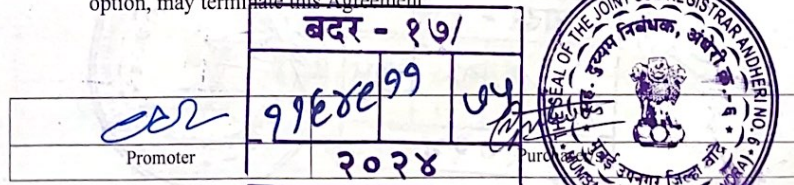 option, may terminate this Agreement
बदर - १७/
११६४९ ११ ७५
२०२४
Promoter
THE SEAL OF THE JOINT SUB REGISTRAR ANDHERI NO. 6
सह. दुय्यम निबंधक, अंधेरी क्र. - ६
मुंबई उपनगर जिल्हा